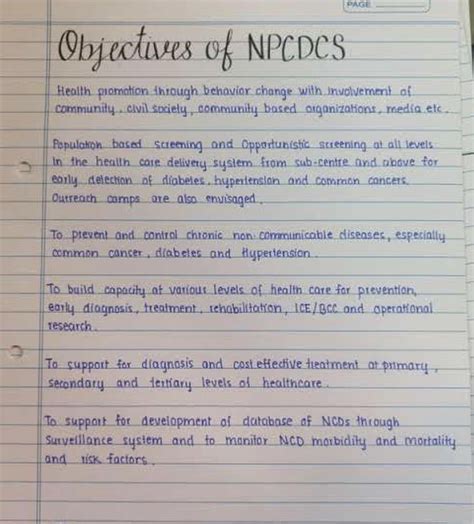 PAGE
Objectives of NPCDCS
Health promotion through behavior change with involvement of
community, civil society, community based organizations, media etc.
Population based screening and Opportunistic screening at all levels
in the health care delivery system from sub-centre and above for
early detection of diabetes, hypertension and common cancers.
Outreach camps are also envisaged.
To prevent and control chronic non communicable diseases, especially
common cancer, diabetes and Hypertension.
To build capacity at various levels of health care for prevention,
early diagnosis, treatment, rehabilitation, ICE/BCC and operational
research.
To support for diagnosis and cost effective treatment at primary,
secondary and tertiary levels of healthcare.
To support for development of database of NCDs through
Surveillance system and to monitor NCD morbidity and mortality
and risk factors.